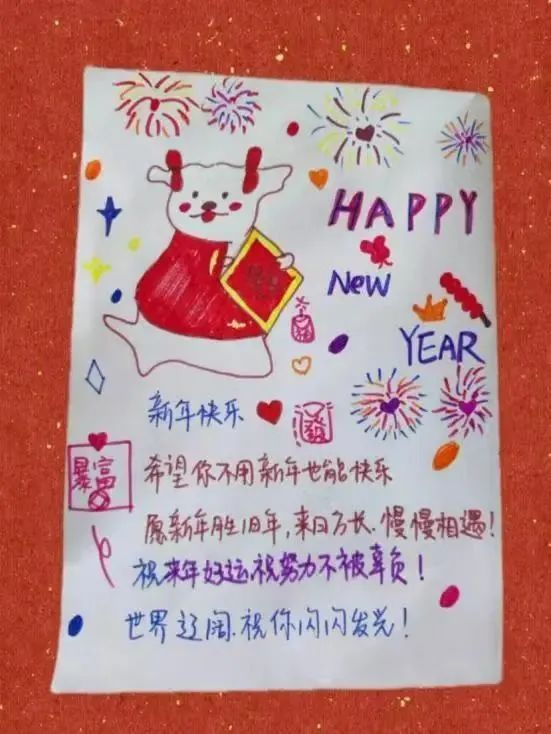 HAPPY
New
YEAR
新年快乐
發
暴富
希望你不用新年也能快乐
愿新年胜旧年,来日方长.慢慢相遇!
祝来年好运.祝努力不被辜负!
世界辽阔.祝你闪闪发光!